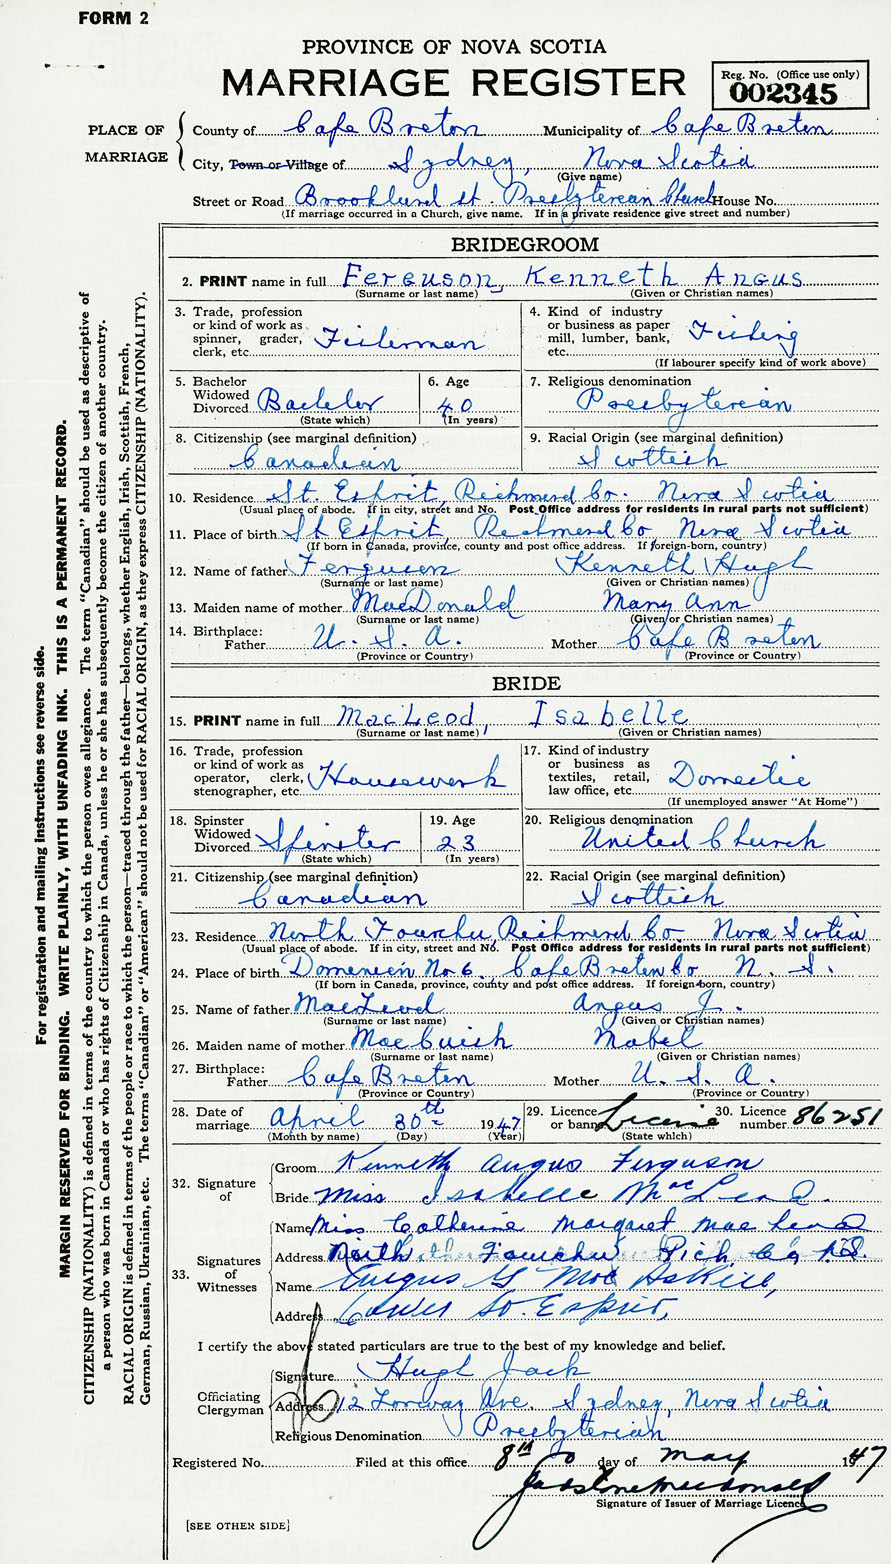 FORM 2
PROVINCE OF NOVA SCOTIA
MARRIAGE REGISTER
Reg. No. (Office use only)
002345
PLACE OF MARRIAGE
County of Cape Breton Municipality of Cape Breton
City, Town or Village of Sydney, Nova Scotia
(Give name)
Street or Road Brookland St. Presbyterian Church House No.
(If marriage occurred in a Church, give name. If in a private residence give street and number)
BRIDEGROOM
2. PRINT name in full Ferguson, Kenneth Angus
(Surname or last name) (Given or Christian names)
3. Trade, profession or kind of work as spinner, grader, clerk, etc. Fisherman
4. Kind of industry or business as paper mill, lumber, bank, etc. Fishing
(If labourer specify kind of work above)
5. Bachelor Widowed Divorced Bachelor
(State which)
6. Age 40
(In years)
7. Religious denomination Presbyterian
8. Citizenship (see marginal definition) Canadian
9. Racial Origin (see marginal definition) Scottish
10. Residence St. Esprit, Richmond Co. Nova Scotia
(Usual place of abode. If in city, street and No. Post Office address for residents in rural parts not sufficient)
11. Place of birth St Esprit, Richmond Co Nova Scotia
(If born in Canada, province, county and post office address. If foreign-born, country)
12. Name of father Ferguson Kenneth Hugh
(Surname or last name) (Given or Christian names)
13. Maiden name of mother MacDonald Mary Ann
(Surname or last name) (Given or Christian names)
14. Birthplace: Father U. S. A. Mother Cape Breton
(Province or Country) (Province or Country)
BRIDE
15. PRINT name in full MacLeod, Isabelle
(Surname or last name) (Given or Christian names)
16. Trade, profession or kind of work as operator, clerk, stenographer, etc. Housework
17. Kind of industry or business as textiles, retail, law office, etc. Domestic
(If unemployed answer "At Home")
18. Spinster Widowed Divorced Spinster
(State which)
19. Age 23
(In years)
20. Religious denomination United Church
21. Citizenship (see marginal definition) Canadian
22. Racial Origin (see marginal definition) Scottish
23. Residence North Fourchu, Richmond Co. Nova Scotia
(Usual place of abode. If in city, street and No. Post Office address for residents in rural parts not sufficient)
24. Place of birth Dominion No 6. Cape Breton Co N. S.
(If born in Canada, province, county and post office address. If foreign-born, country)
25. Name of father MacLeod Angus J.
(Surname or last name) (Given or Christian names)
26. Maiden name of mother MacCuish Mabel
(Surname or last name) (Given or Christian names)
27. Birthplace: Father Cape Breton Mother U. S. A.
(Province or Country) (Province or Country)
28. Date of marriage April 30th 1947
(Month by name) (Day) (Year)
29. Licence or bann Licence
(State which)
30. Licence number 86251
32. Signature of
Groom Kenneth Angus Ferguson
Bride Miss Isabelle MacLeod.
33. Signatures of Witnesses
Name Miss Catherine Margaret MacLeod
Address North Fourchu Rich Co N.S.
Name Angus G MacAskill,
Address Lower St. Esprit,
I certify the above stated particulars are true to the best of my knowledge and belief.
Officiating Clergyman
Signature Hugh Jack
Address 12 Lorway Ave. Sydney, Nova Scotia
Religious Denomination Presbyterian
Registered No. Filed at this office 8th day of May 1947
Macdonald
Signature of Issuer of Marriage Licence
[SEE OTHER SIDE]
For registration and mailing instructions see reverse side.
MARGIN RESERVED FOR BINDING. WRITE PLAINLY, WITH UNFADING INK. THIS IS A PERMANENT RECORD.
CITIZENSHIP (NATIONALITY) is defined in terms of the country to which the person owes allegiance. The term "Canadian" should be used as descriptive of
a person who was born in Canada or who has rights of Citizenship in Canada, unless he or she has subsequently become the citizen of another country.
RACIAL ORIGIN is defined in terms of the people or race to which the person—traced through the father—belongs, whether English, Irish, Scottish, French,
German, Russian, Ukrainian, etc. The terms "Canadian" or "American" should not be used for RACIAL ORIGIN, as they express CITIZENSHIP (NATIONALITY).